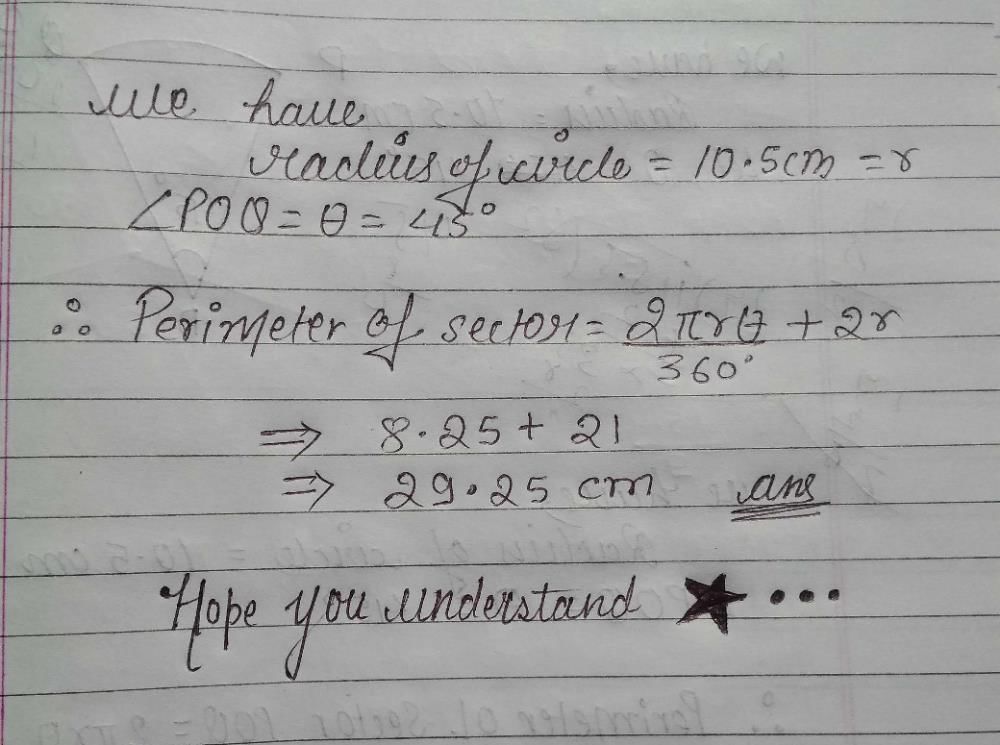 We have
radius of circle = 10.5cm = r
∠POQ = θ = 45°
∴ Perimeter of sector = 2πrθ/360° + 2r
⇒ 8.25 + 21
⇒ 29.25 cm ans
Hope you understand ★...